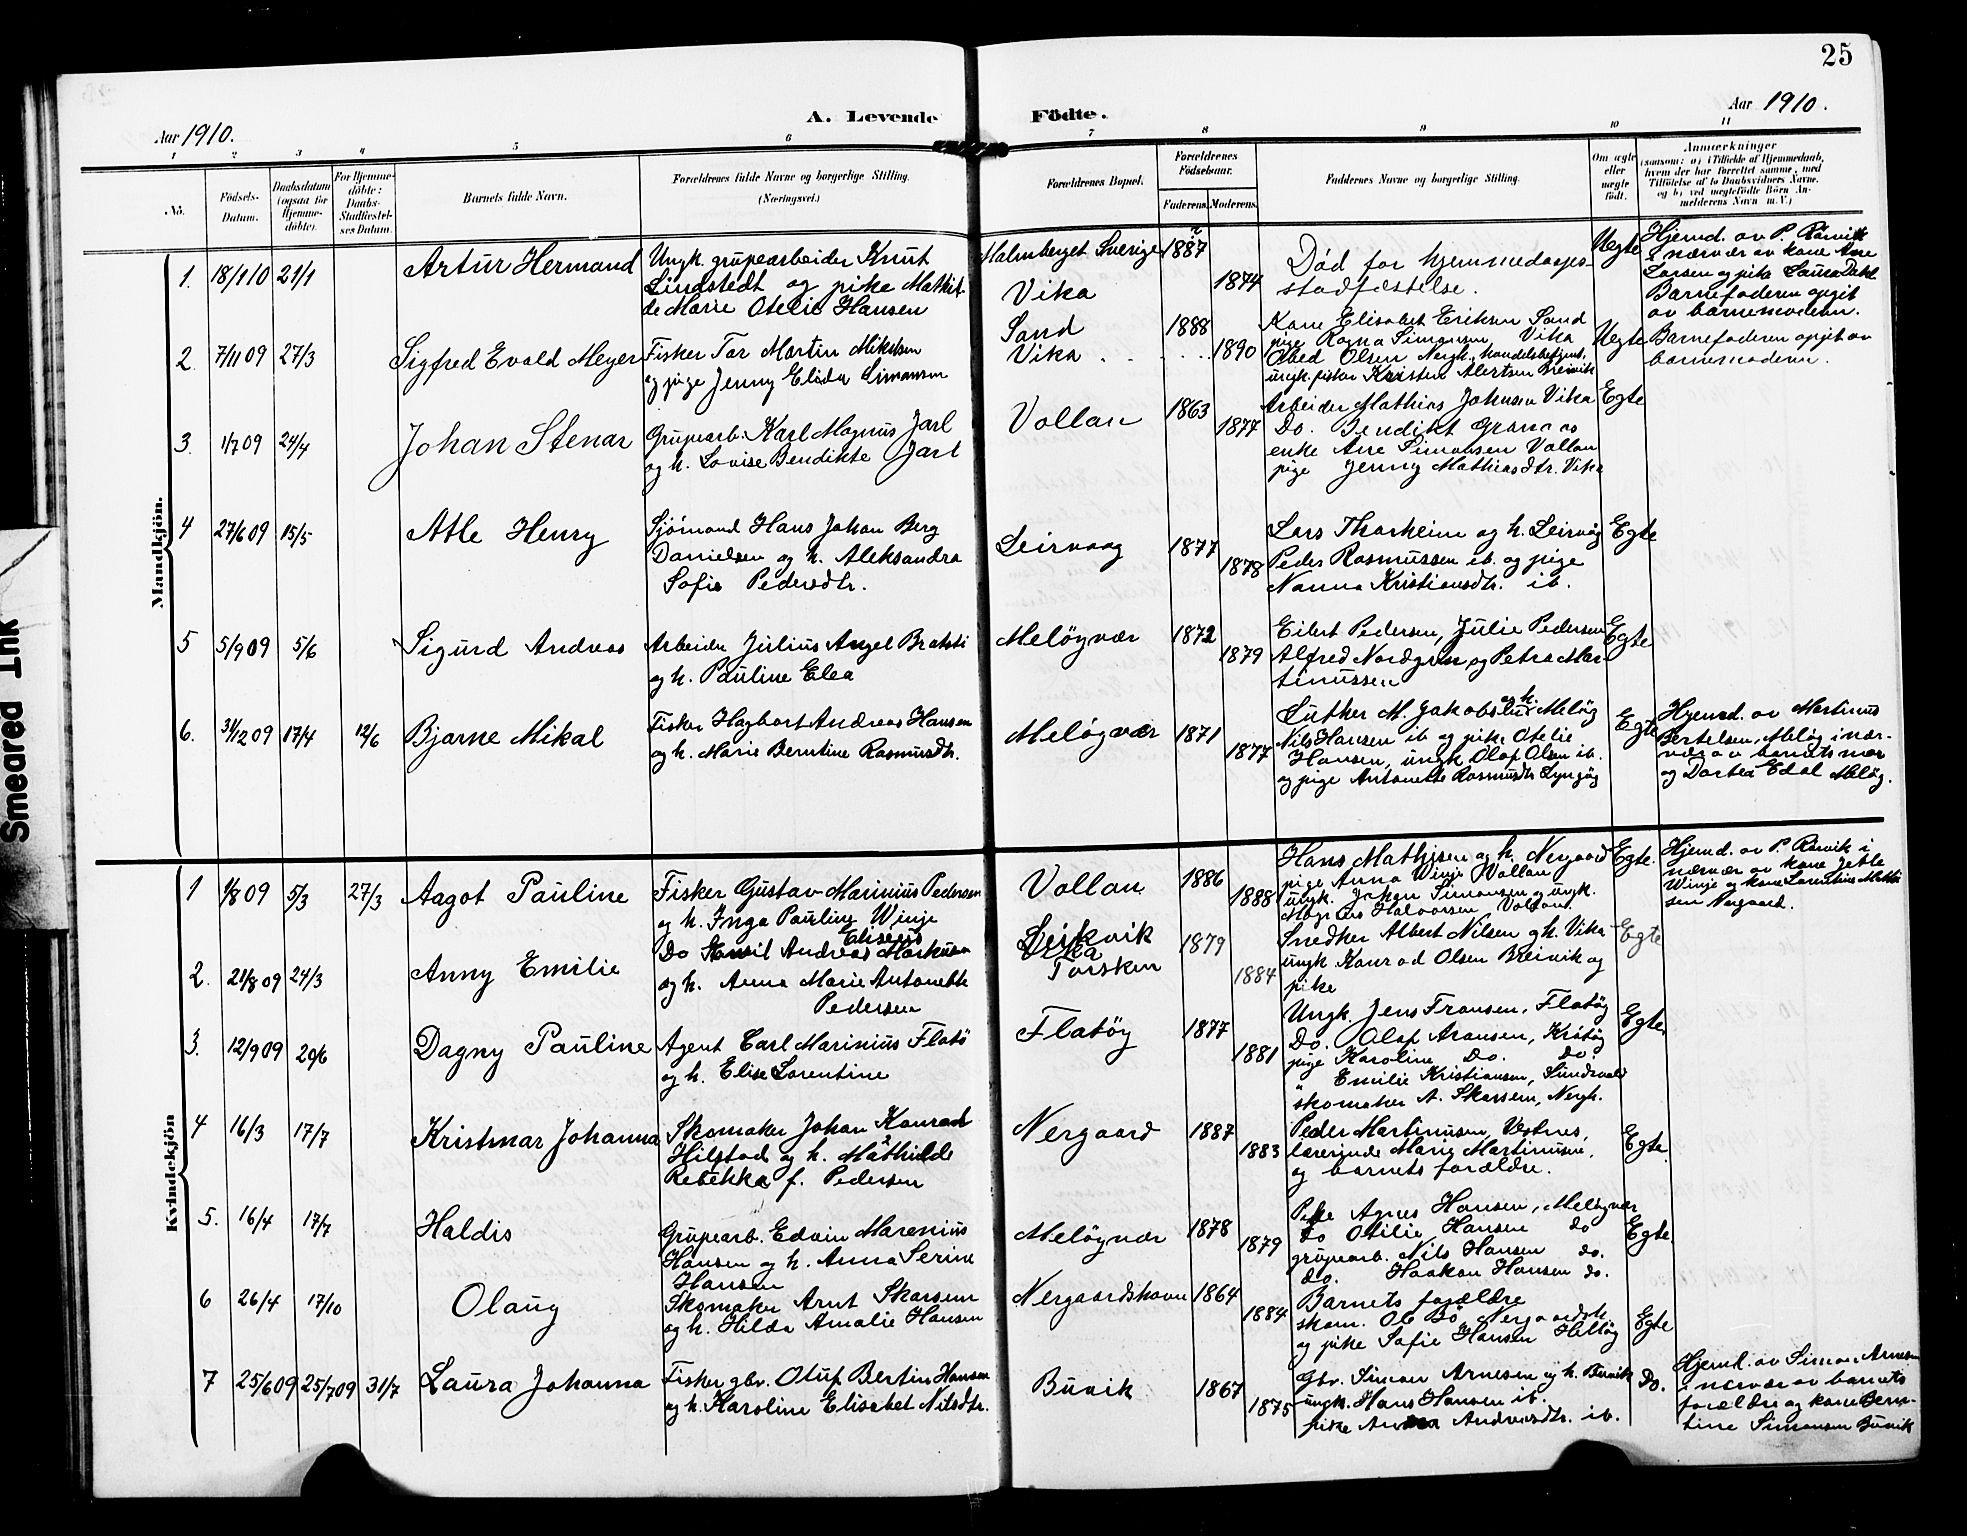 25
Aar 1910.
A. Levende
Födte.
Aar 1910.
1 2 3 4 5 6 7 8 9 10 11
No.
Födsels-
Datum.
Daabsdatum
(ogsaa for
Hjemme-
döbte).
For Hjemme-
döbte:
Daabs-
Stadfæstel-
ses Datum.
Barnets fulde Navn.
Forældrenes fulde Navne og borgerlige Stilling.
(Næringsvei.)
Forældrenes Bopæl.
Forældrenes
Födselsaar.
Faderens. Moderens.
Faddernes Navne og borgerlige Stilling.
Om ægte
eller
uægte
födt.
Anmærkninger
(saasom: a) i Tilfælde af Hjemmedaab,
hvem der har forrettet samme, med
Tilföielse af to Daabsvidners Navne,
og b) ved uægtefödte Börn An-
melderens Navn m. V.)
Mandkjön.
1. 18/1 10 21/1 Artur Hermand
Ungk. grupearbeider Knut
Lindstedt og pike Mathil-
de Marie Otelie Hansen
Malmberget Sverige
Vika
1887
1874
Död før hjemmedaaps-
stadfæstelse.
Uegte
Hjemd. av P. Rörvik
i nærvær av kone Ane
Larsen og pike Laura Dahl
Barnefaderen opgit
av barnemoderen.
2. 7/11 09 27/3 Sigfred Evald Meyer
Fisker Tor Martin Mikalsen
og pige Jenny Elida Simonsen
Sand
Vika
1888
1890
Kone Elisabet Eriksen Sand
pige Ragna Simonsen Vika
Obed Olsen Nergh. handelsbetjent,
ungk. fisker Kristen Alertsen Breivik
Uegte
Barnefaderen opgit av
barnemoderen.
3. 1/7 09 24/4 Johan Stenar
Grupearb. Karl Magnus Jarl
og h. Lovise Bendikte Jarl
Vollan
1863
1877
Arbeider Mathias Johnsen Vika
Do. Bendikt Granaas
enke Ane Simonsen Vollan
pige Jenny Mathiasdtr. Vika
Egte
4 27/6 09 15/5 Atle Henry
Sjömand Hans Johan Berg
Danielsen og h. Aleksandra
Sofie Pedersdtr.
Leirvaag
1877
1878
Lars Thorheim og h. Leirvåg
Peder Rasmussen ib. og pige
Nanna Kristiansdtr. ib.
Egte
5 5/9 09 5/6 Sigurd Andreas
Arbeider Julius Angel Bratsti
og h. Pauline Elea
Melöyvær
1872
1879
Eilert Pedersen, Julie Pedersen
Alfred Nordgren og Petra Mar-
tinussen
Egte
6. 31/12 09 17/4 12/6 Bjarne Mikal
Fisker Hagbart Andreas Hansen
og h. Marie Berntine Rasmusdtr.
Melöyvær
1871
1877
Luther M. Jakobsen og h. Melöy
Nils Hansen ib og pike Otelie
Hansen, ungk Olaf Olsen ib.
og pige Antonette Rasmusdtr Lyngöy
Egte
Hjemd. av Martinus
Bertelsen, Melöy i nær-
vær av barnets mor
og Dortea Edal Melöy.
Kvindekjön
1 1/8 09 5/3 27/3 Aagot Pauline
Fisker Gustav Marinius Pedersen
og h. Inga Pauline Winje
Vollan
1886
1888
Hans Mathisen og h. Nergaard
pige Anna Winje Vollan
ungk. Johan Simonsen og ungk.
Magnus Halvorsen Vollan.
Egte.
Hjemd. av P. Rörvik i
nærvær av kone Jette
Winje og kone Lorentine Mathi
sen Nergaard.
2. 21/8 09 24/3 Anny Emilie
Eliseus
Do Andreas Markusen
og h. Anna Marie Antonette
Pedersen
Vika
Torsken
1879
1884
Snedker Albert Nilsen og h. Vika
ungk Konrad Olsen Breivik og
pike
Egte
3. 12/9 09 20/6 Dagny Pauline
Agent Carl Marinius Flatö
og h. Elise Lorentine
Flatöy
1877
1881
Ungk. Jens Fransen, Flatöy
Do. Olaf Aronsen, Kråköy
pige Karoline Do. do.
" Emilie Kristiansen, Sundsvold
skomaker A. Skarsem, Nergh.
Egte.
4 16/3 17/7 Kristmar Johanna
Skomaker Johan Konrad
Hilstad og h. Mathilde
Rebekka f. Pedersen
Nergaard
1887
1883
Peder Martinusen, Vestnes,
lærerinde Marie Martinusen,
og barnets forældre.
Egte.
5. 16/4 17/7 Haldis
Grupearb. Edvin Marenius
Hansen og h. Anna Serine
Hansen
Melöyvær
1878
1879
Pike Agnes Hansen, Melöyvær
Do Otilie Hansen do
grupearb. Nils Hansen do.
do. Haakon Hansen do.
Egte.
6 26/4 17/10 Olaug
Skomaker Arnt Skarsem
og h. Hilda Amalie Hansen
Nergaardshavn
1864
1884
Barnets forældre
skom. Ole Bö Nergaardsh.
og pike Sofie Hansen
Egte
7 25/6 09 25/7 09 31/7 Laura Johanna
Fisker gbr. Oluf Bertin Hansen
og h. Karoline Elisabet Nilsdtr.
Buvik
1867
1875
Gbr. Simon Arnesen og h. Buvik
ungk. Hans Hansen ib.
pike Andreasdtr. ib.
Do.
Hjemd. av Simon Arnesen
i nærvær av barnets
forældre og kone Bern-
tine Simonsen Buvik
Smeared Ink